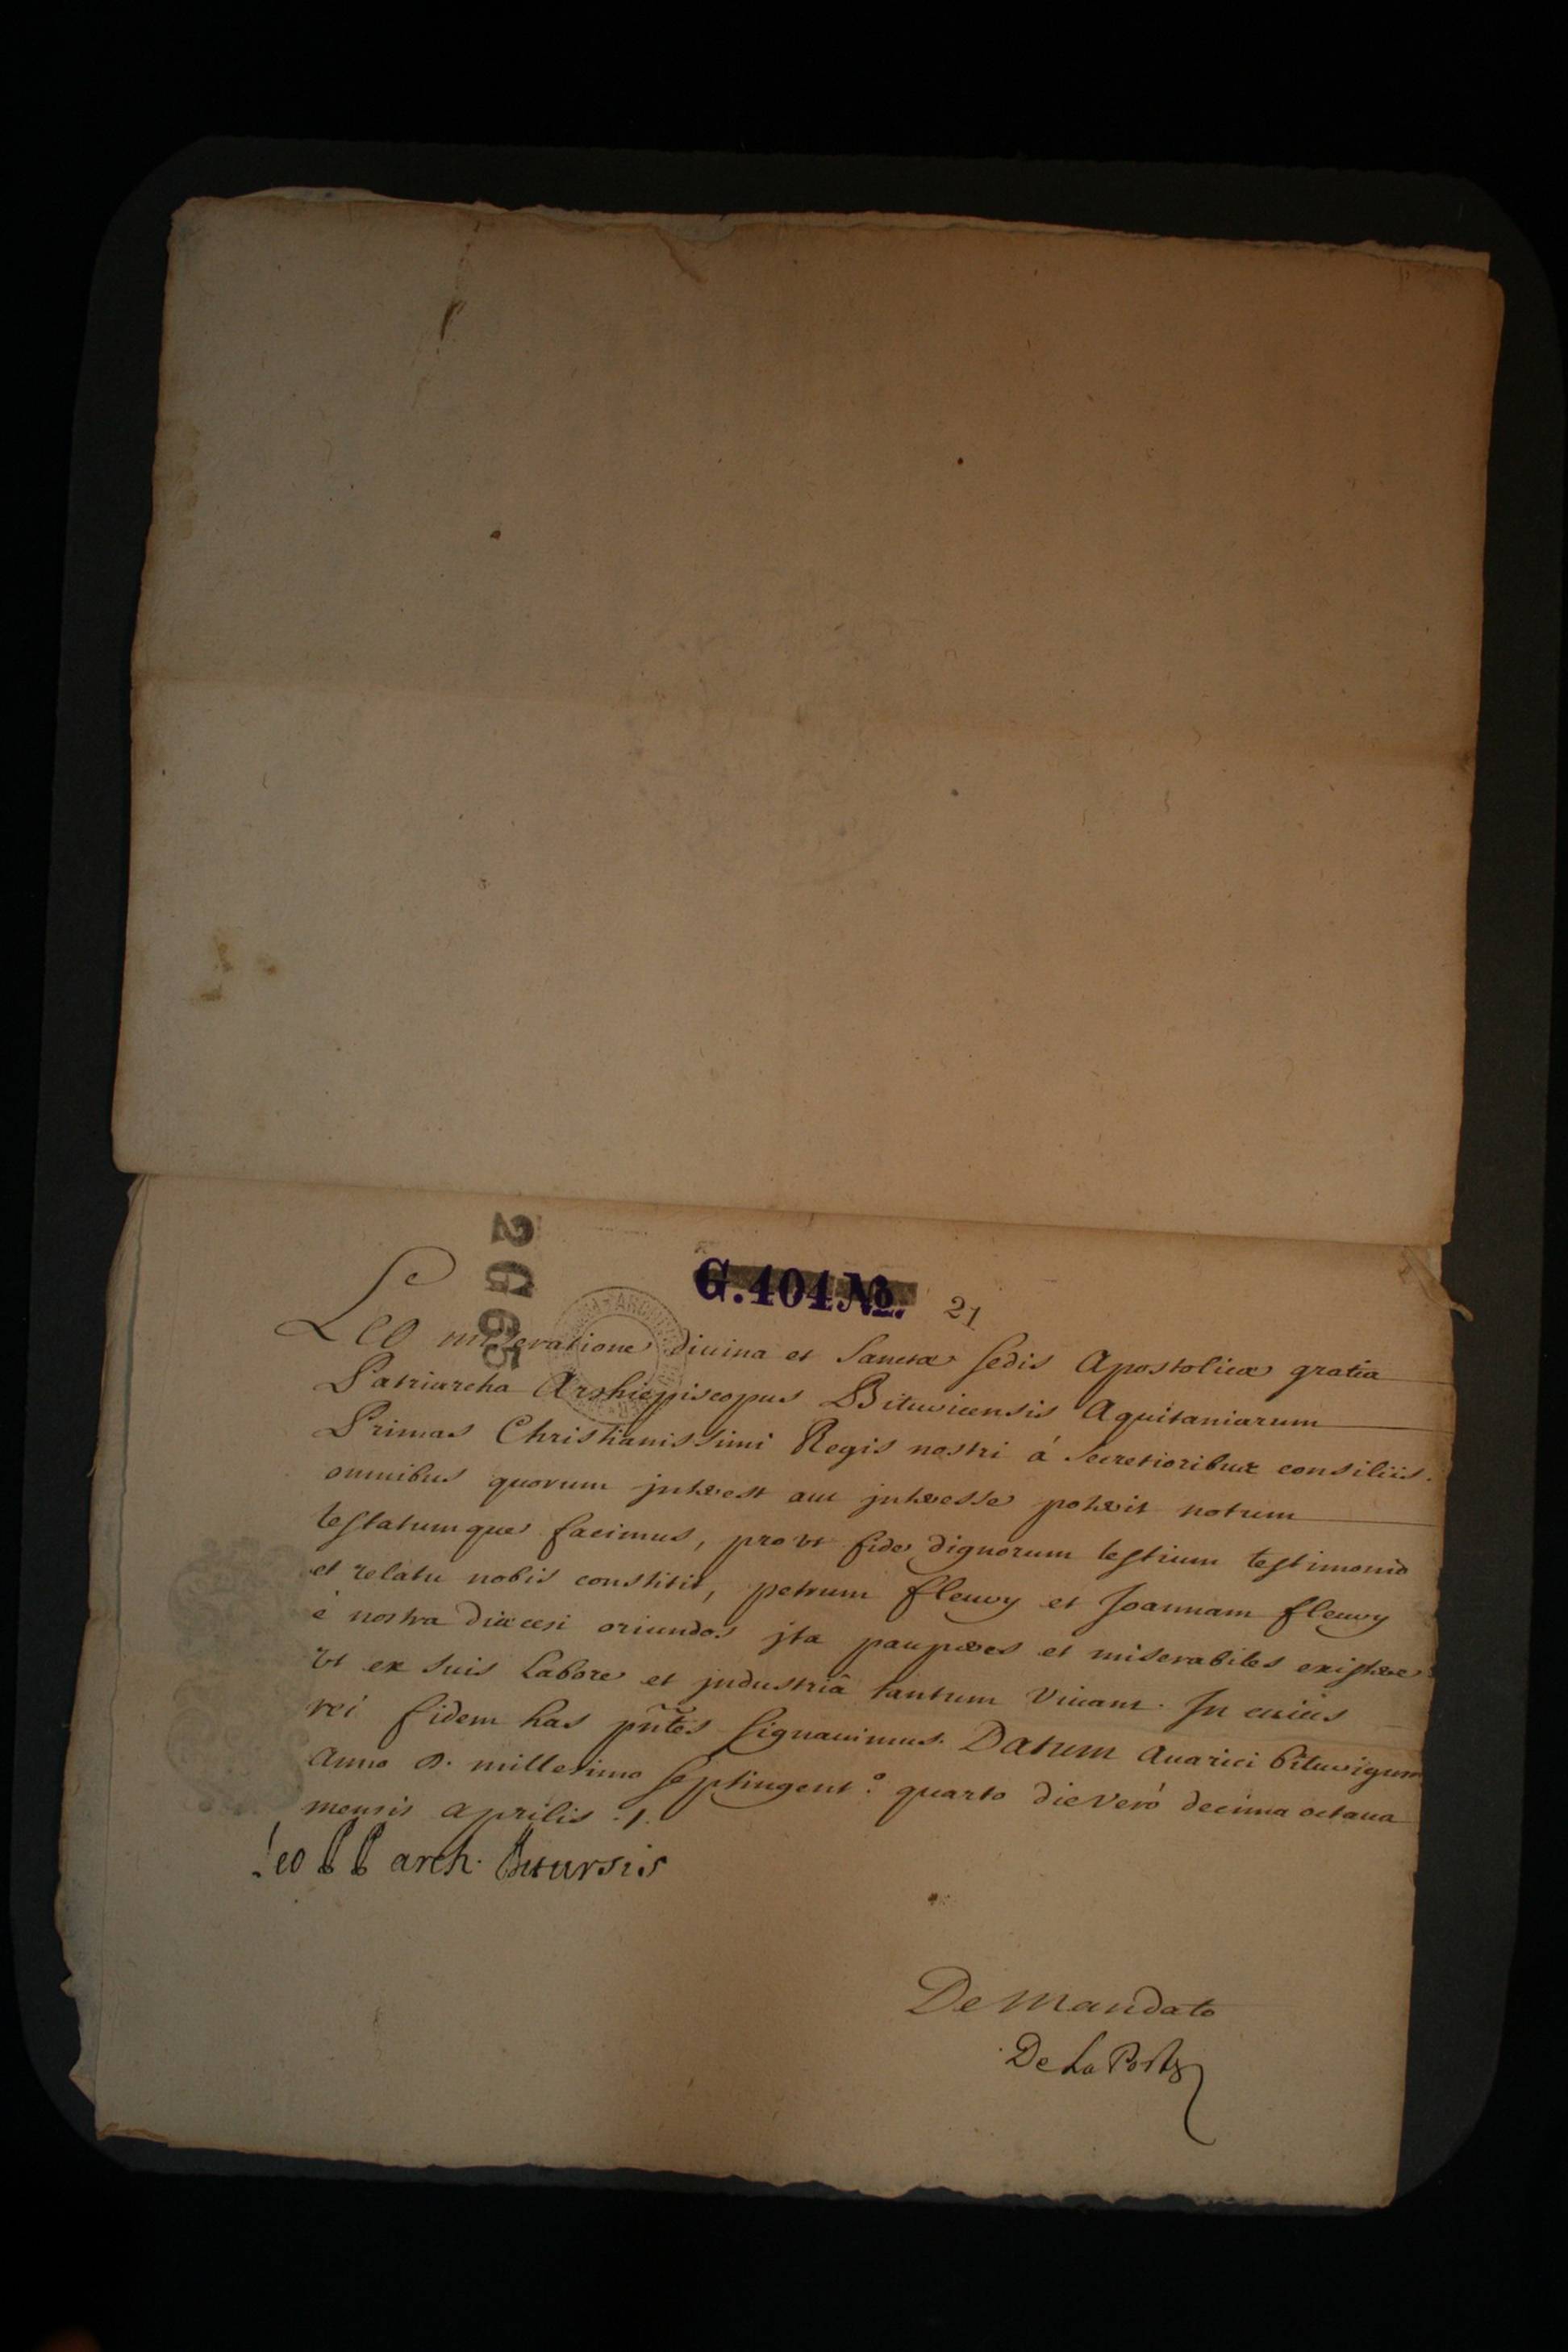 2 G 65
G. 404 No. 21
Leo miseratione diuina et Sanctæ sedis Apostolicæ gratia
Patriarcha Archiepiscopus Bituricensis Aquitaniarum
Primas Christianissimi Regis nostri á Secretioribus consiliis.
omnibus quorum jnterest aut jnteresse poterit notum
testatumque facimus, pro vt fide dignorum testium testimonio
et relatu nobis constitit, petrum fleury et Joannam fleury
é nostra diœcesi oriundos jta pauperes et miserabiles existere
vt ex suis Labore et jndustriâ tantum viuant. In cuius
rei fidem has pñtes signauimus. Datum Auarici biturigum
anno D. millesimo septingent.o quarto die veró decima octaua
mensis aprilis ./.
Leo PP arch. Bitursis
De Mandato
De La Porte